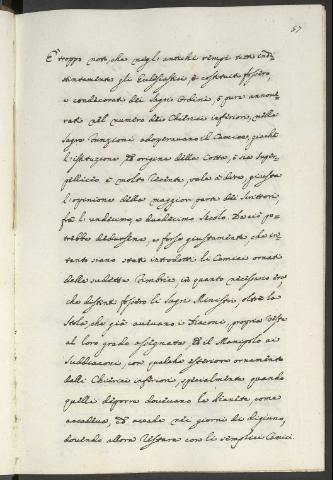 57
È troppo noto, che negli antichi tempi tutti indi-
stintamente gli Ecclesiastici o costituiti fossero,
o condecorati dei Sagri Ordini, o pure annove-
rati nel numero dei Chierici inferiori, nelle
Sagre Funzioni adoperavano il Camice, giacchè
l'istituzione, ed origine della Cotta, o sia Super-
pelliceo è molto recente, vale a dire, giusta
l'opinione della maggior parte dei Scrittori,
frà l'undecimo, e duodecimo Secolo. Da ciò po-
trebbe dedursene, e forse giustamente, che in-
tanto siano stati introdotti li Camici ornati
delle suddette Fimbrie, in quanto necessario era,
che distinti fossero li Sagri Ministri, oltre la
Stola, che già avevano i Diaconi, propria veste
al loro grado assegnata, ed il Manipolo ai
Suddiaconi, con qualche esteriore ornamento
dalli Chierici inferiori, specialmente quando
quelli deporre dovevano le Pianete, come
accadeva, ed accade nei giorni di digiuno,
dovendo allora restare con li semplici Camici.